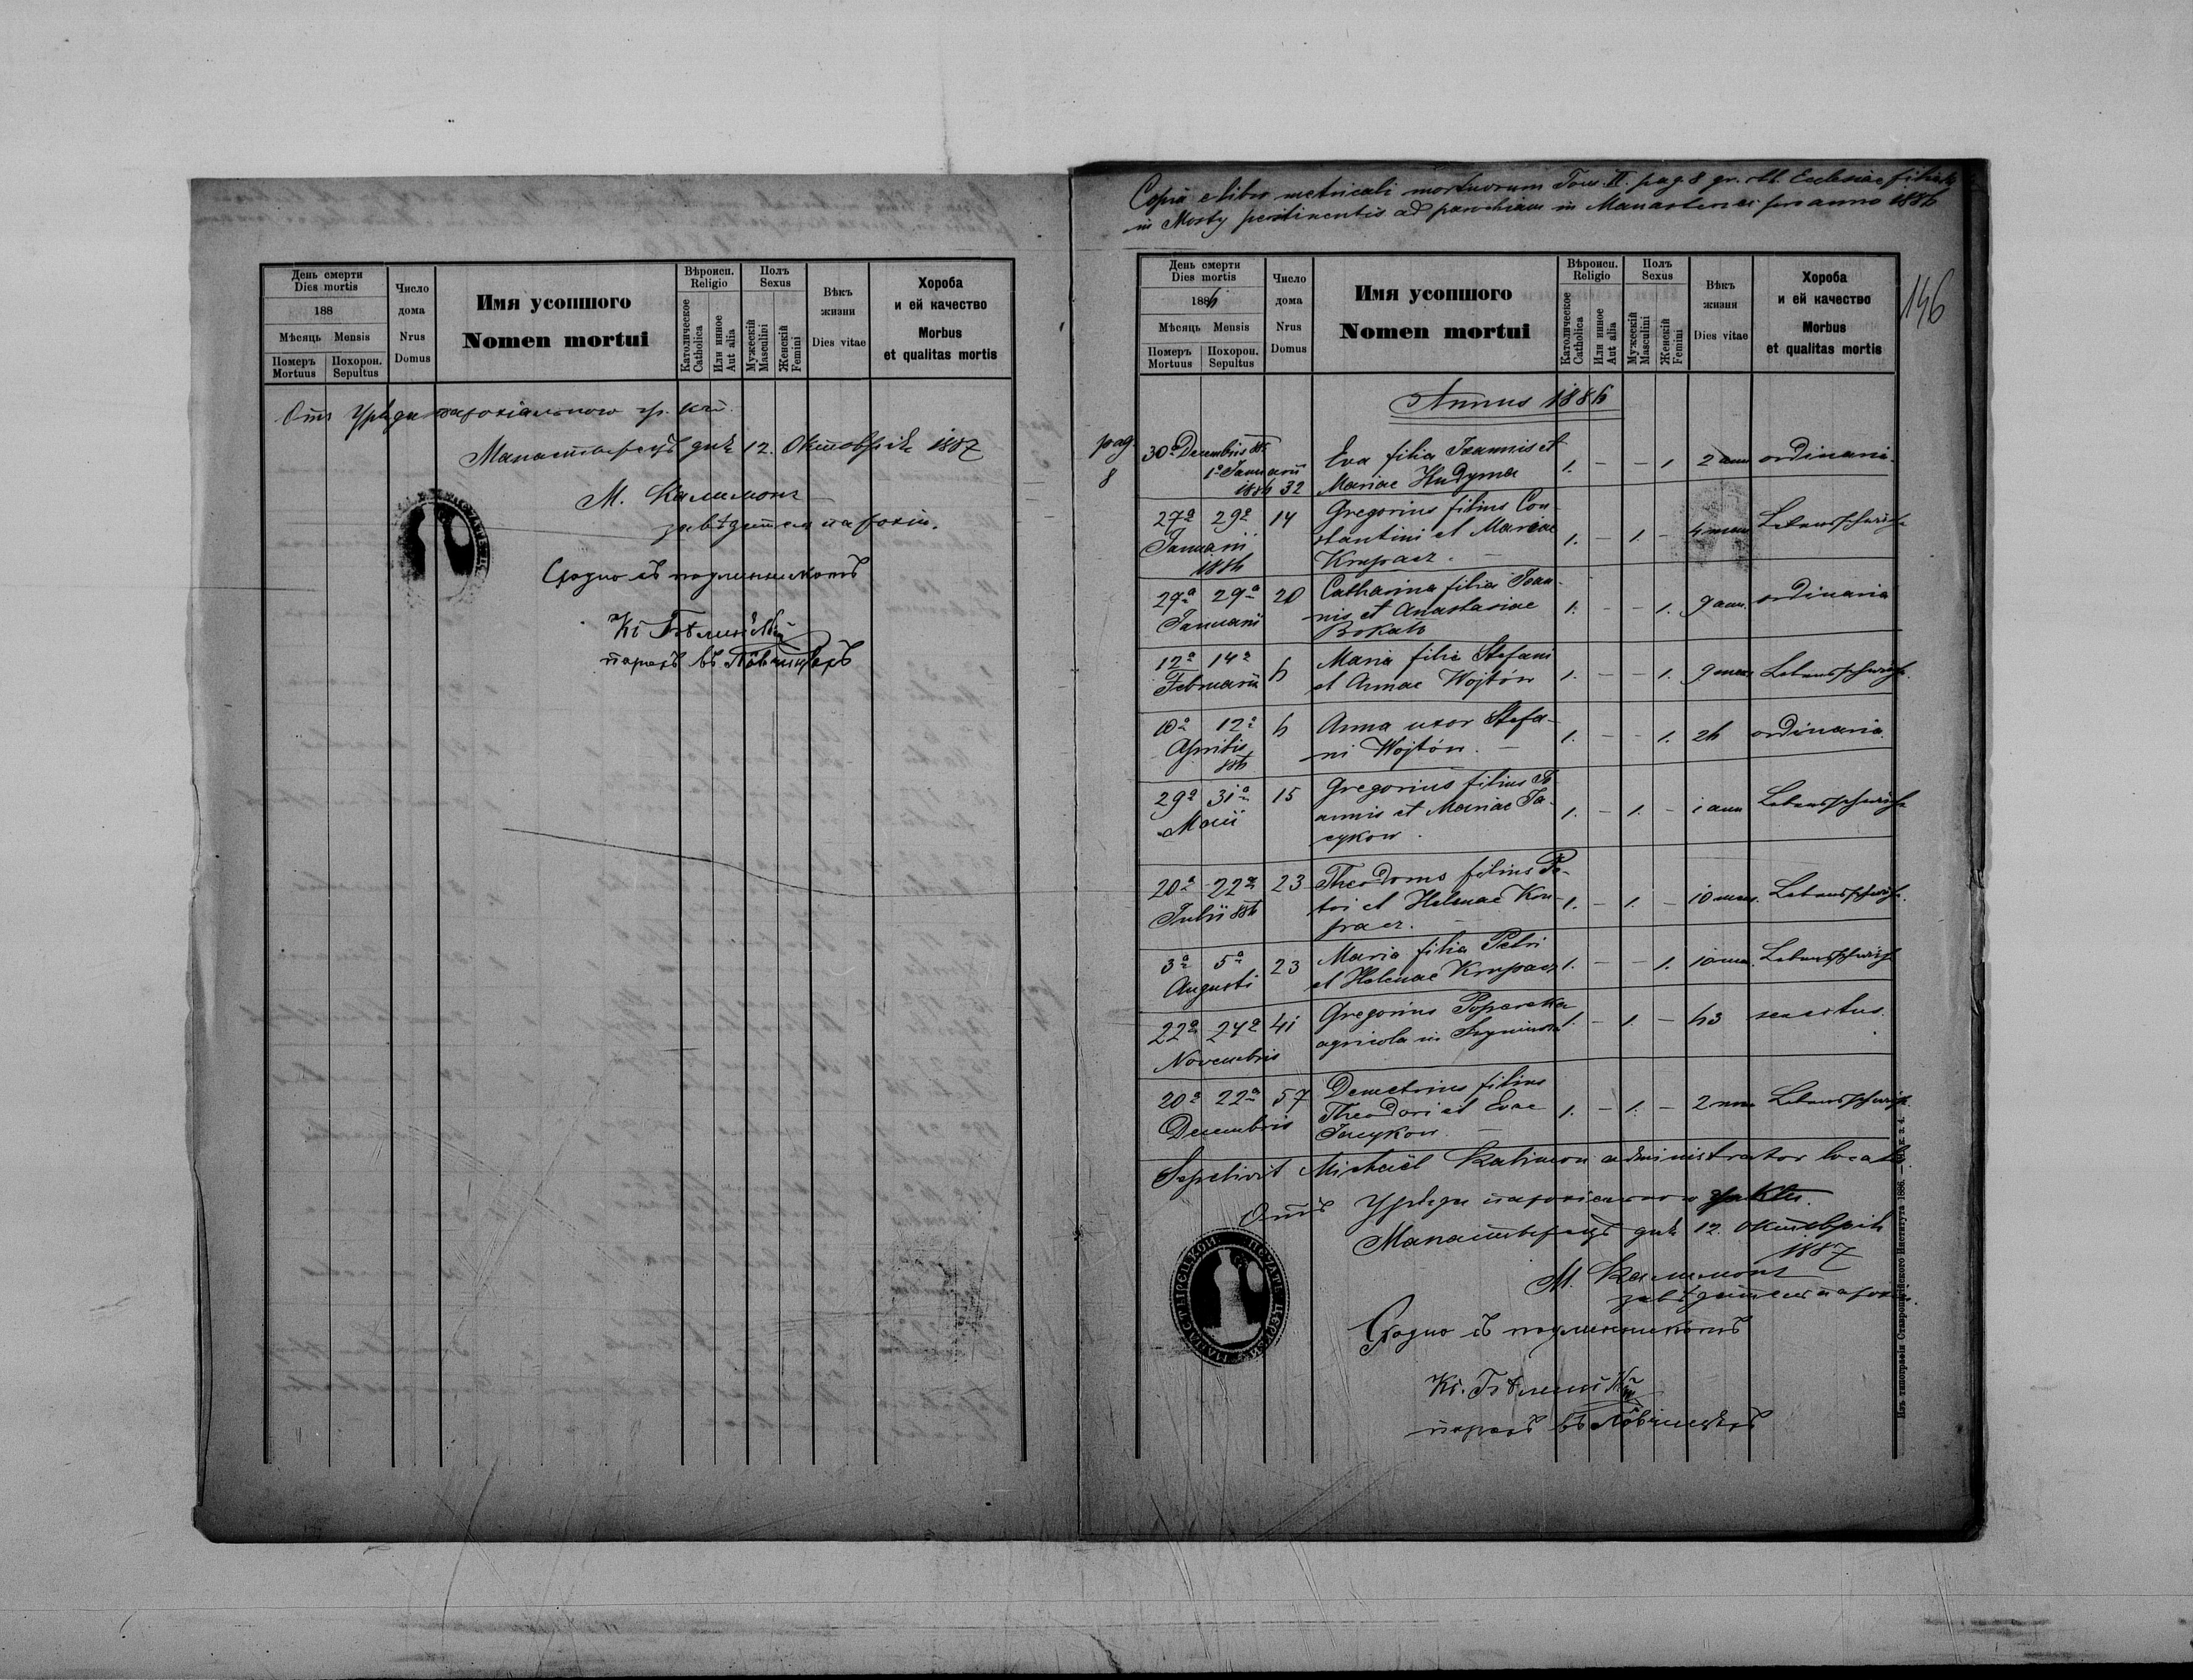 День смерти
Dies mortis
188
Мѣсяць Mensis
Померъ
Mortuus
Похорон.
Sepultus
Число
дома
Nrus
Domus
Имя усопшого
Nomen mortui
Вѣроисп.
Religio
Католическое
Catholica
Или инное
Aut alia
Полъ
Sexus
Мужескій
Masculini
Женскій
Femini
Вѣкъ
жизни
Dies vitae
Хороба
и ей качество
Morbus
et qualitas mortis
Отъ Уряда парохіального гр. кат.
Манастырець дня 12. Октобрія 1887
М. Калимонъ
завѣдатель парохіи.
Сходно съ подлинникомъ
парохъ въ
Copia e libro metricali mortuorum Tom. II. pag. 8 gr. rit. Ecclesiae filialis
in Mosty pertinentis ad parochiam in Manasterzec pro anno 1886
146
День смерти
Dies mortis
1886
Мѣсяць Mensis
Померъ
Mortuus
Похорон.
Sepultus
Число
дома
Nrus
Domus
Имя усопшого
Nomen mortui
Вѣроисп.
Religio
Католическое
Catholica
Или инное
Aut alia
Полъ
Sexus
Мужескій
Masculini
Женскій
Femini
Вѣкъ
жизни
Dies vitae
Хороба
и ей качество
Morbus
et qualitas mortis
Annus 1886
pag.
8
30a Decembris 885
1a Januarii
1886 32
Eva filia Joannis et
Mariae Hudyma
1. - - 1 2 ann ordinaria.
27a 29a 14
Januarii
1886
Gregorius filius Con-
stantini et Mariae
Krupacz. -
1. - 1 - 4 mens Lebensschwäche
27a 29a 20
Januarii
Catharina filia Joan-
nis et Anastasiae
1. - - 1. 9 ann. ordinaria
12a 14a 6
Februarii
Maria filia Stefani
et Annae Wojtów
1. - - 1. 9 mens. Lebensschwäche.
10a 12a 6
Aprilis
886
Anna uxor Stefa-
ni Wojtów. -
1. - - 1. 26 ordinaria.
29a 31a 15
Maii
Gregorius filius Jo-
annis et Mariae Ja-
cykow.
1. - 1. - 1 ann Lebensschwäche
20a 22a 23
Julii 886
Theodorus filius Pe-
tri et Helenae Kru-
pacz.
1. - 1. - 10 mens. Lebensschwäche.
3a 5a 23
Augusti
Maria filia Petri
et Helenae Krupacz
1. - - 1. Lebensschwäche
22a 24a 41
Novembris
Gregorius
agricola in
1. - 1. - 63
20a 22a 57
Decembris
Demetrius filius
Theodori et Evae
Jacykow. -
1. - 1. - Lebensschwäche
Sepelivit Michaël Kalimon administrator localis
Отъ Уряда парохіального
Манастырець дня 12. Октобрія
1887
М. Калимонъ
завѣдатель парохіи.
Сходно съ подлинникомъ
парохъ въ
ПЕЧАТЬ ЦЕРКВИ МАНАСТЫРЕЦКОИ
Изъ типографіи Ставропигійского Института 1886.